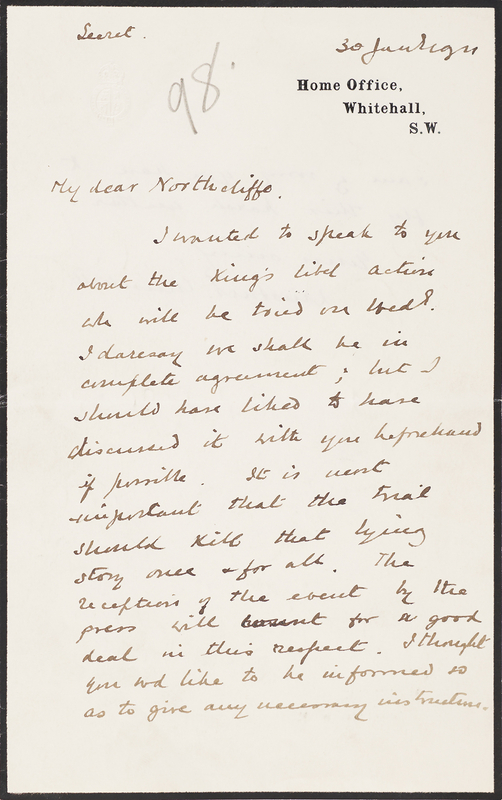 Secret.
30 Jan 1911
98.
Home Office,
Whitehall,
S.W.
My dear Northcliffe.
I wanted to speak to you
about the King's libel action
wh will be tried on Wedy.
I daresay we shall be in
complete agreement; but I
should have liked to have
discussed it with you beforehand
if possible. It is most
important that the trial
should kill that lying
story once & for all. The
reception of the event by the
press will count for a good
deal in this respect. I thought
you wd like to be informed so
as to give any necessary instructions.